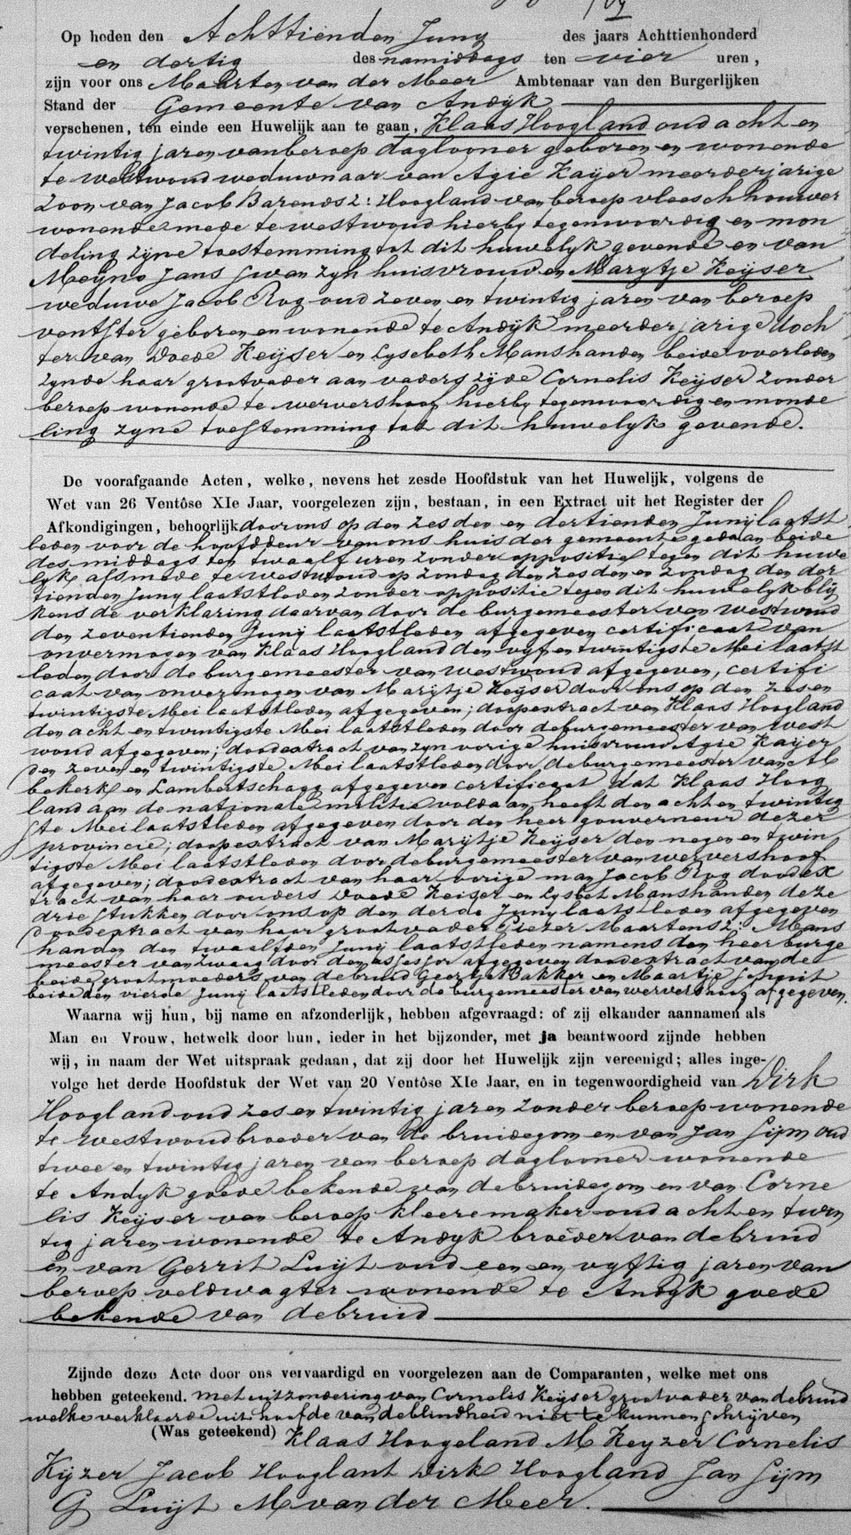 Op heden den Achttienden Juny des jaars Achttienhonderd
en dertig des namiddags ten vier uren,
zijn voor ons Maarten van der Meer Ambtenaar van den Burgerlijken
Stand der Gemeente van Andyk
verschenen, ten einde een Huwelijk aan te gaan, Klaas Hoogland oud acht en
twintig jaren van beroep daglooner geboren en wonende
te westwoud weduwnaar van Agie Kaijer meerderjarige
Zoon van Jacob Barendsz: Hoogland van beroep vleeschhouwer
wonende mede te westwoud hierby tegenwoordig en mon
deling zyne toestemming tot dit huwelyk gevende en van
Meyno Jans Swan zyn huisvrouw en Marytje Keijser
weduwe Jacob Rog oud zeven en twintig jaren van beroep
ventster geboren en wonende te Andyk meerderjarige doch
ter van Doede Keijser en Lysebeth Manshanden beide overleden
zynde haar grootvader aan vaders zyde Cornelis Keijser zonder
beroep wonende te wervershoof hierby tegenwoordig en monde
ling zyne toestemming tot dit huwelyk gevende.
De voorafgaande Acten, welke, nevens het zesde Hoofdstuk van het Huwelijk, volgens de
Wet van 26 Ventôse XIe Jaar, voorgelezen zijn, bestaan, in een Extract uit het Register der
Afkondigingen, behoorlijk door ons op den zesden en dertienden Junij laatst
leden voor de hoofddeur van ons huis der gemeente gedaan beide
des middags ten twaalf uren zonder oppositie tegen dit huwe
lyk, alsmede te westwoud op zondag den zesden en zondag den der
tienden Juny laatstleden zonder oppositie tegen dit huwelyk blij
kens de verklaring daarvan door de burgemeester van westwoud
den zeventienden Junij laatstleden afgegeven certificaat van
onvermogen van Klaas Hoogland den vyf en twintigste Mei laatst
leden door de burgemeester van westwoud afgegeven, certifi
caat van onvermogen van Marijtje Keijser door ons op den zes en
twintigste Mei laatstleden afgegeven; doopextract van Klaas Hoogland
den acht en twintigste Mei laatstleden door de burgemeester van west
woud afgegeven; doodextract van zyn vorige huisvrouw Agie Kaijer
den zeven en twintigste Mei laatstleden door de burgemeester van Ab
bekerk en Lambertschagg afgegeven certificaat dat Klaas Hoog
land aan de nationale militie voldaan heeft den acht en twintig
ste Mei laatstleden afgegeven door den heer gouverneur dezer
provincie; doopextract van Marijtje Keijser den negen en twin
tigste Mei laatstleden door de burgemeester van wervershoof
afgegeven; doodextract van haar vorige man Jacob Rog doodex
tract van haar ouders Doede Keiser en Lysbet Manshanden deze
drie stukken door ons op den derde Juny laatstleden afgegeven
doodextract van haar grootvader Maartensz: Mans
handen den twaalfden Junij laatstleden namens den heer burge
meester van zwaag door den assessor afgegeven doodextract van de
beide grootmoeders van de bruid Bakker en Maartje
beide den vierde Junij laatstleden door de burgemeester van wervershoof afgegeven.
Waarna wij hun, bij name en afzonderlijk, hebben afgevraagd: of zij elkander aannamen als
Man en Vrouw, hetwelk door hun, ieder in het bijzonder, met ja beantwoord zijnde hebben
wij, in naam der Wet uitspraak gedaan, dat zij door het Huwelijk zijn vereenigd; alles inge-
volge het derde Hoofdstuk der Wet van 20 Ventôse XIe Jaar, en in tegenwoordigheid van Dirk
Hoogland oud zes en twintig jaren zonder beroep wonende
te westwoud broeder van de bruidegom en van Jan Sijm oud
twee en twintig jaren van beroep daglooner wonende
te Andyk goede bekende van de bruidegom en van Corne
lis Keijser van beroep kleeremaker oud acht en twin
tig jaren wonende te Andyk broeder van de bruid
en van Gerrit Luijt oud een en vyftig jaren van
beroep veldwagter wonende te Andyk goede
bekende van de bruid
Zijnde deze Acte door ons vervaardigd en voorgelezen aan de Comparanten, welke met ons
hebben geteekend. met uitzondering van Cornelis Keijser grootvader van de bruid
welke verklaarde uit hoofde van de blindheid niet te kunnen schrijven
(Was geteekend) Klaas Hoogeland M Keyzer Cornelis
Kijzer Jacob Hooglant Dirk Hoogland Jan Sijm
G Luijt M van der Meer.